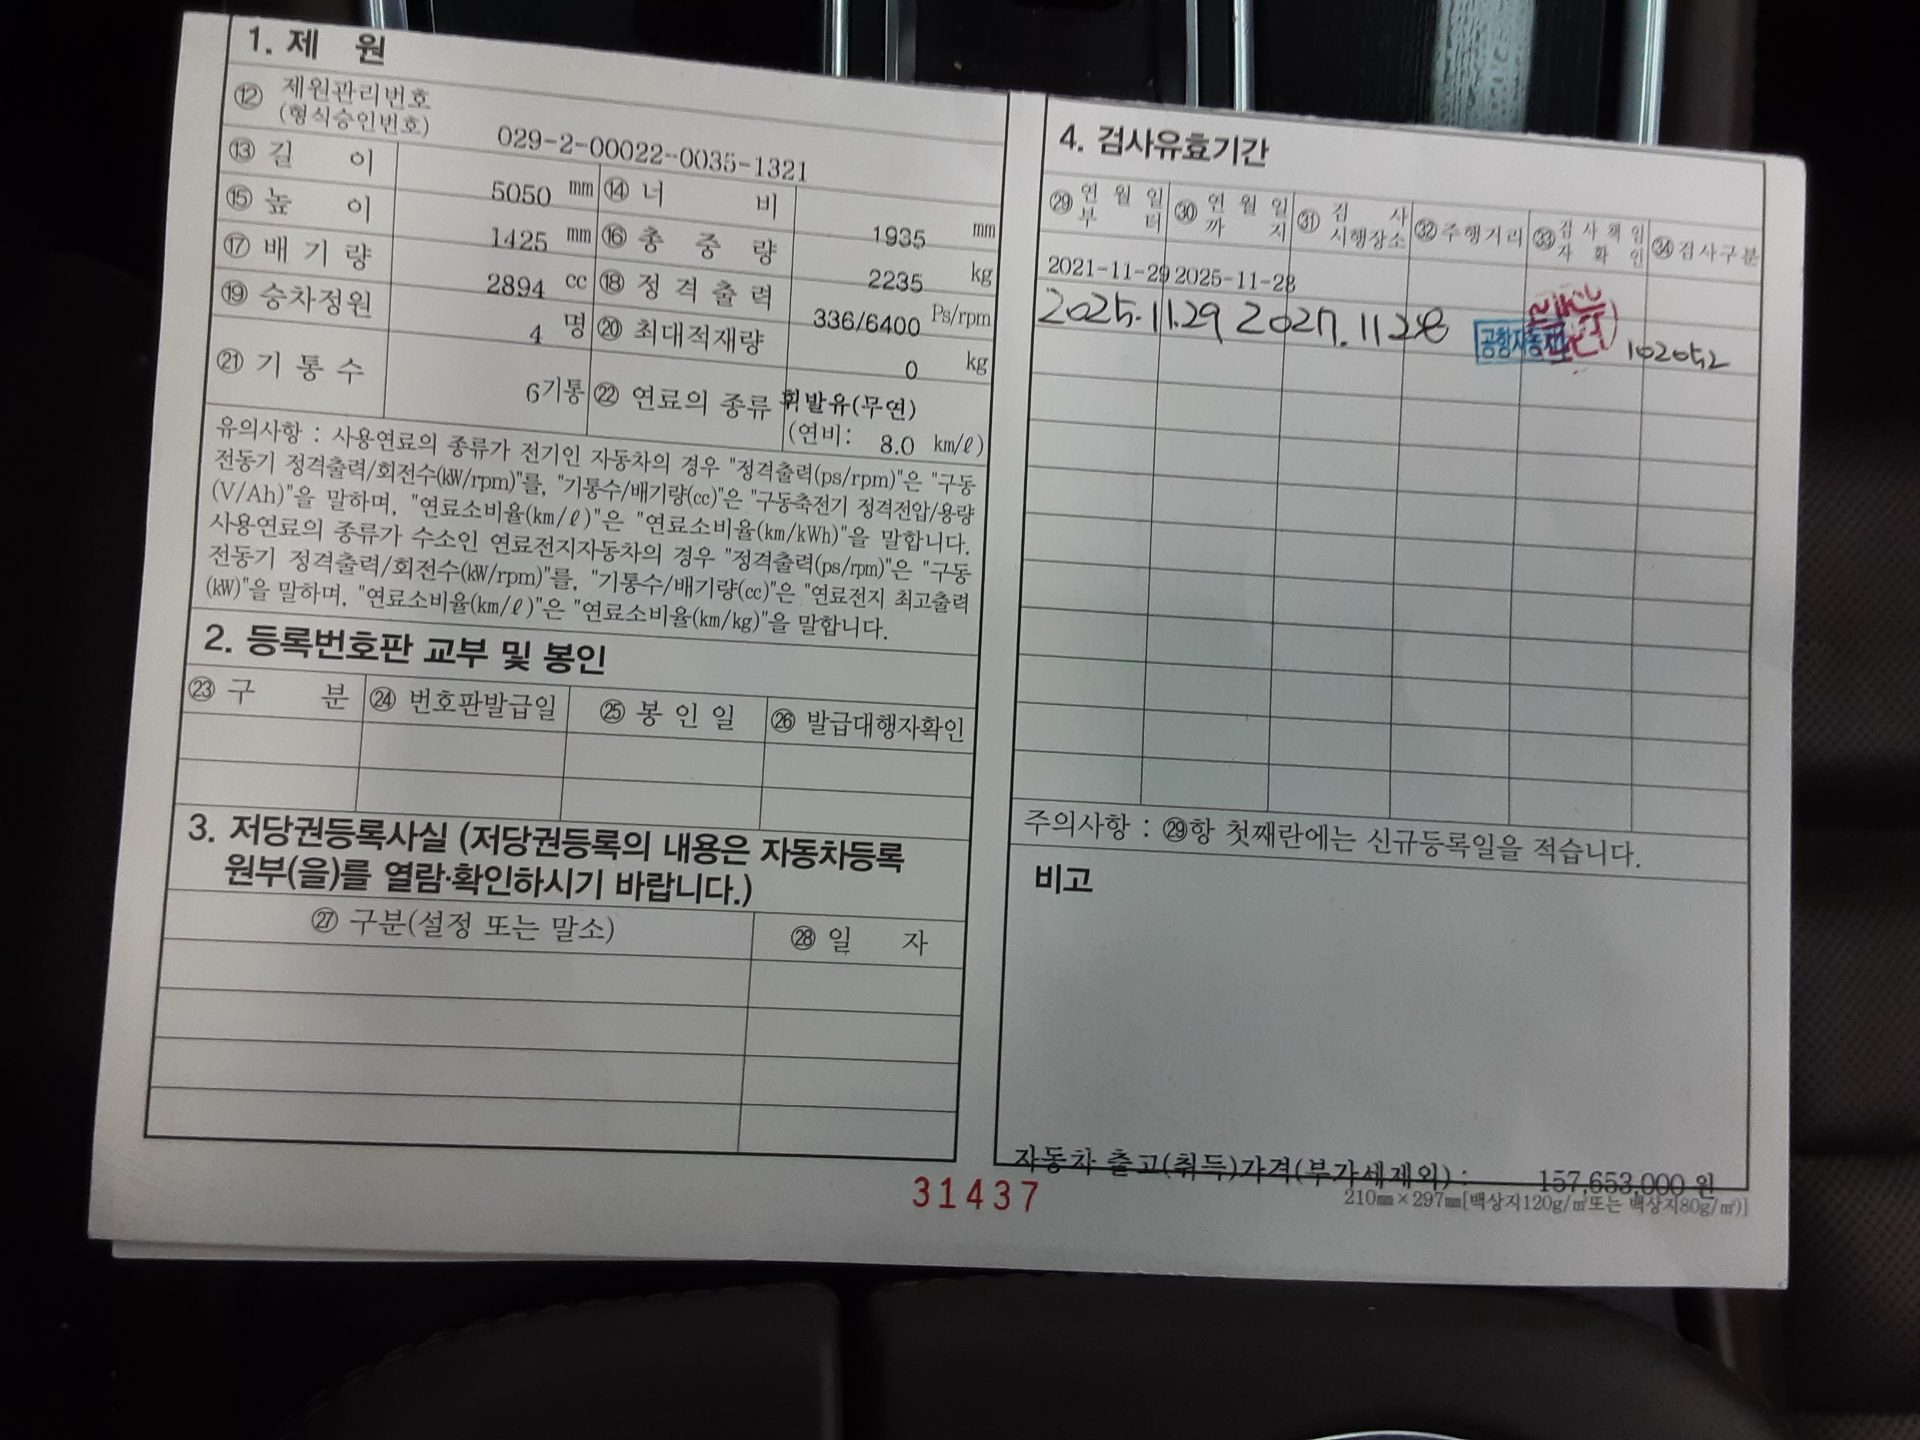 1. 제 원
⑫ 제원관리번호
(형식승인번호) 029-2-00022-0035-1321
⑬ 길 이 5050 mm ⑭ 너 비 1935 mm
⑮ 높 이 1425 mm ⑯ 총 중 량 2235 kg
⑰ 배 기 량 2894 cc ⑱ 정 격 출 력 336/6400 Ps/rpm
⑲ 승차정원 4 명 ⑳ 최대적재량 0 kg
㉑ 기 통 수 6기통 ㉒ 연료의 종류 휘발유(무연)
(연비: 8.0 km/ℓ)
유의사항 : 사용연료의 종류가 전기인 자동차의 경우 "정격출력(ps/rpm)"은 "구동
전동기 정격출력/회전수(kW/rpm)"를, "기통수/배기량(cc)"은 "구동축전기 정격전압/용량
(V/Ah)"을 말하며, "연료소비율(km/ℓ)"은 "연료소비율(km/kWh)"을 말합니다.
사용연료의 종류가 수소인 연료전지자동차의 경우 "정격출력(ps/rpm)"은 "구동
전동기 정격출력/회전수(kW/rpm)"를, "기통수/배기량(cc)"은 "연료전지 최고출력
(kW)"을 말하며, "연료소비율(km/ℓ)"은 "연료소비율(km/kg)"을 말합니다.
2. 등록번호판 교부 및 봉인
㉓ 구 분 ㉔ 번호판발급일 ㉕ 봉 인 일 ㉖ 발급대행자확인
3. 저당권등록사실 (저당권등록의 내용은 자동차등록
원부(을)를 열람·확인하시기 바랍니다.)
㉗ 구분(설정 또는 말소) ㉘ 일 자
4. 검사유효기간
㉙ 연 월 일 부 터 ㉚ 연 월 일 까 지 ㉛ 검 사 시행장소 ㉜ 주행거리 ㉝ 검 사 책 임 자 확 인 ㉞ 검사구분
2021-11-29 2025-11-28
2025.11.29 2027.11 28 공항자동차 102052
주의사항 : ㉙항 첫째란에는 신규등록일을 적습니다.
비고
자동차 출고(취득)가격(부가세제외) : 157,653,000 원
210㎜×297㎜[백상지120g/㎡또는 백상지80g/㎡)]
31437